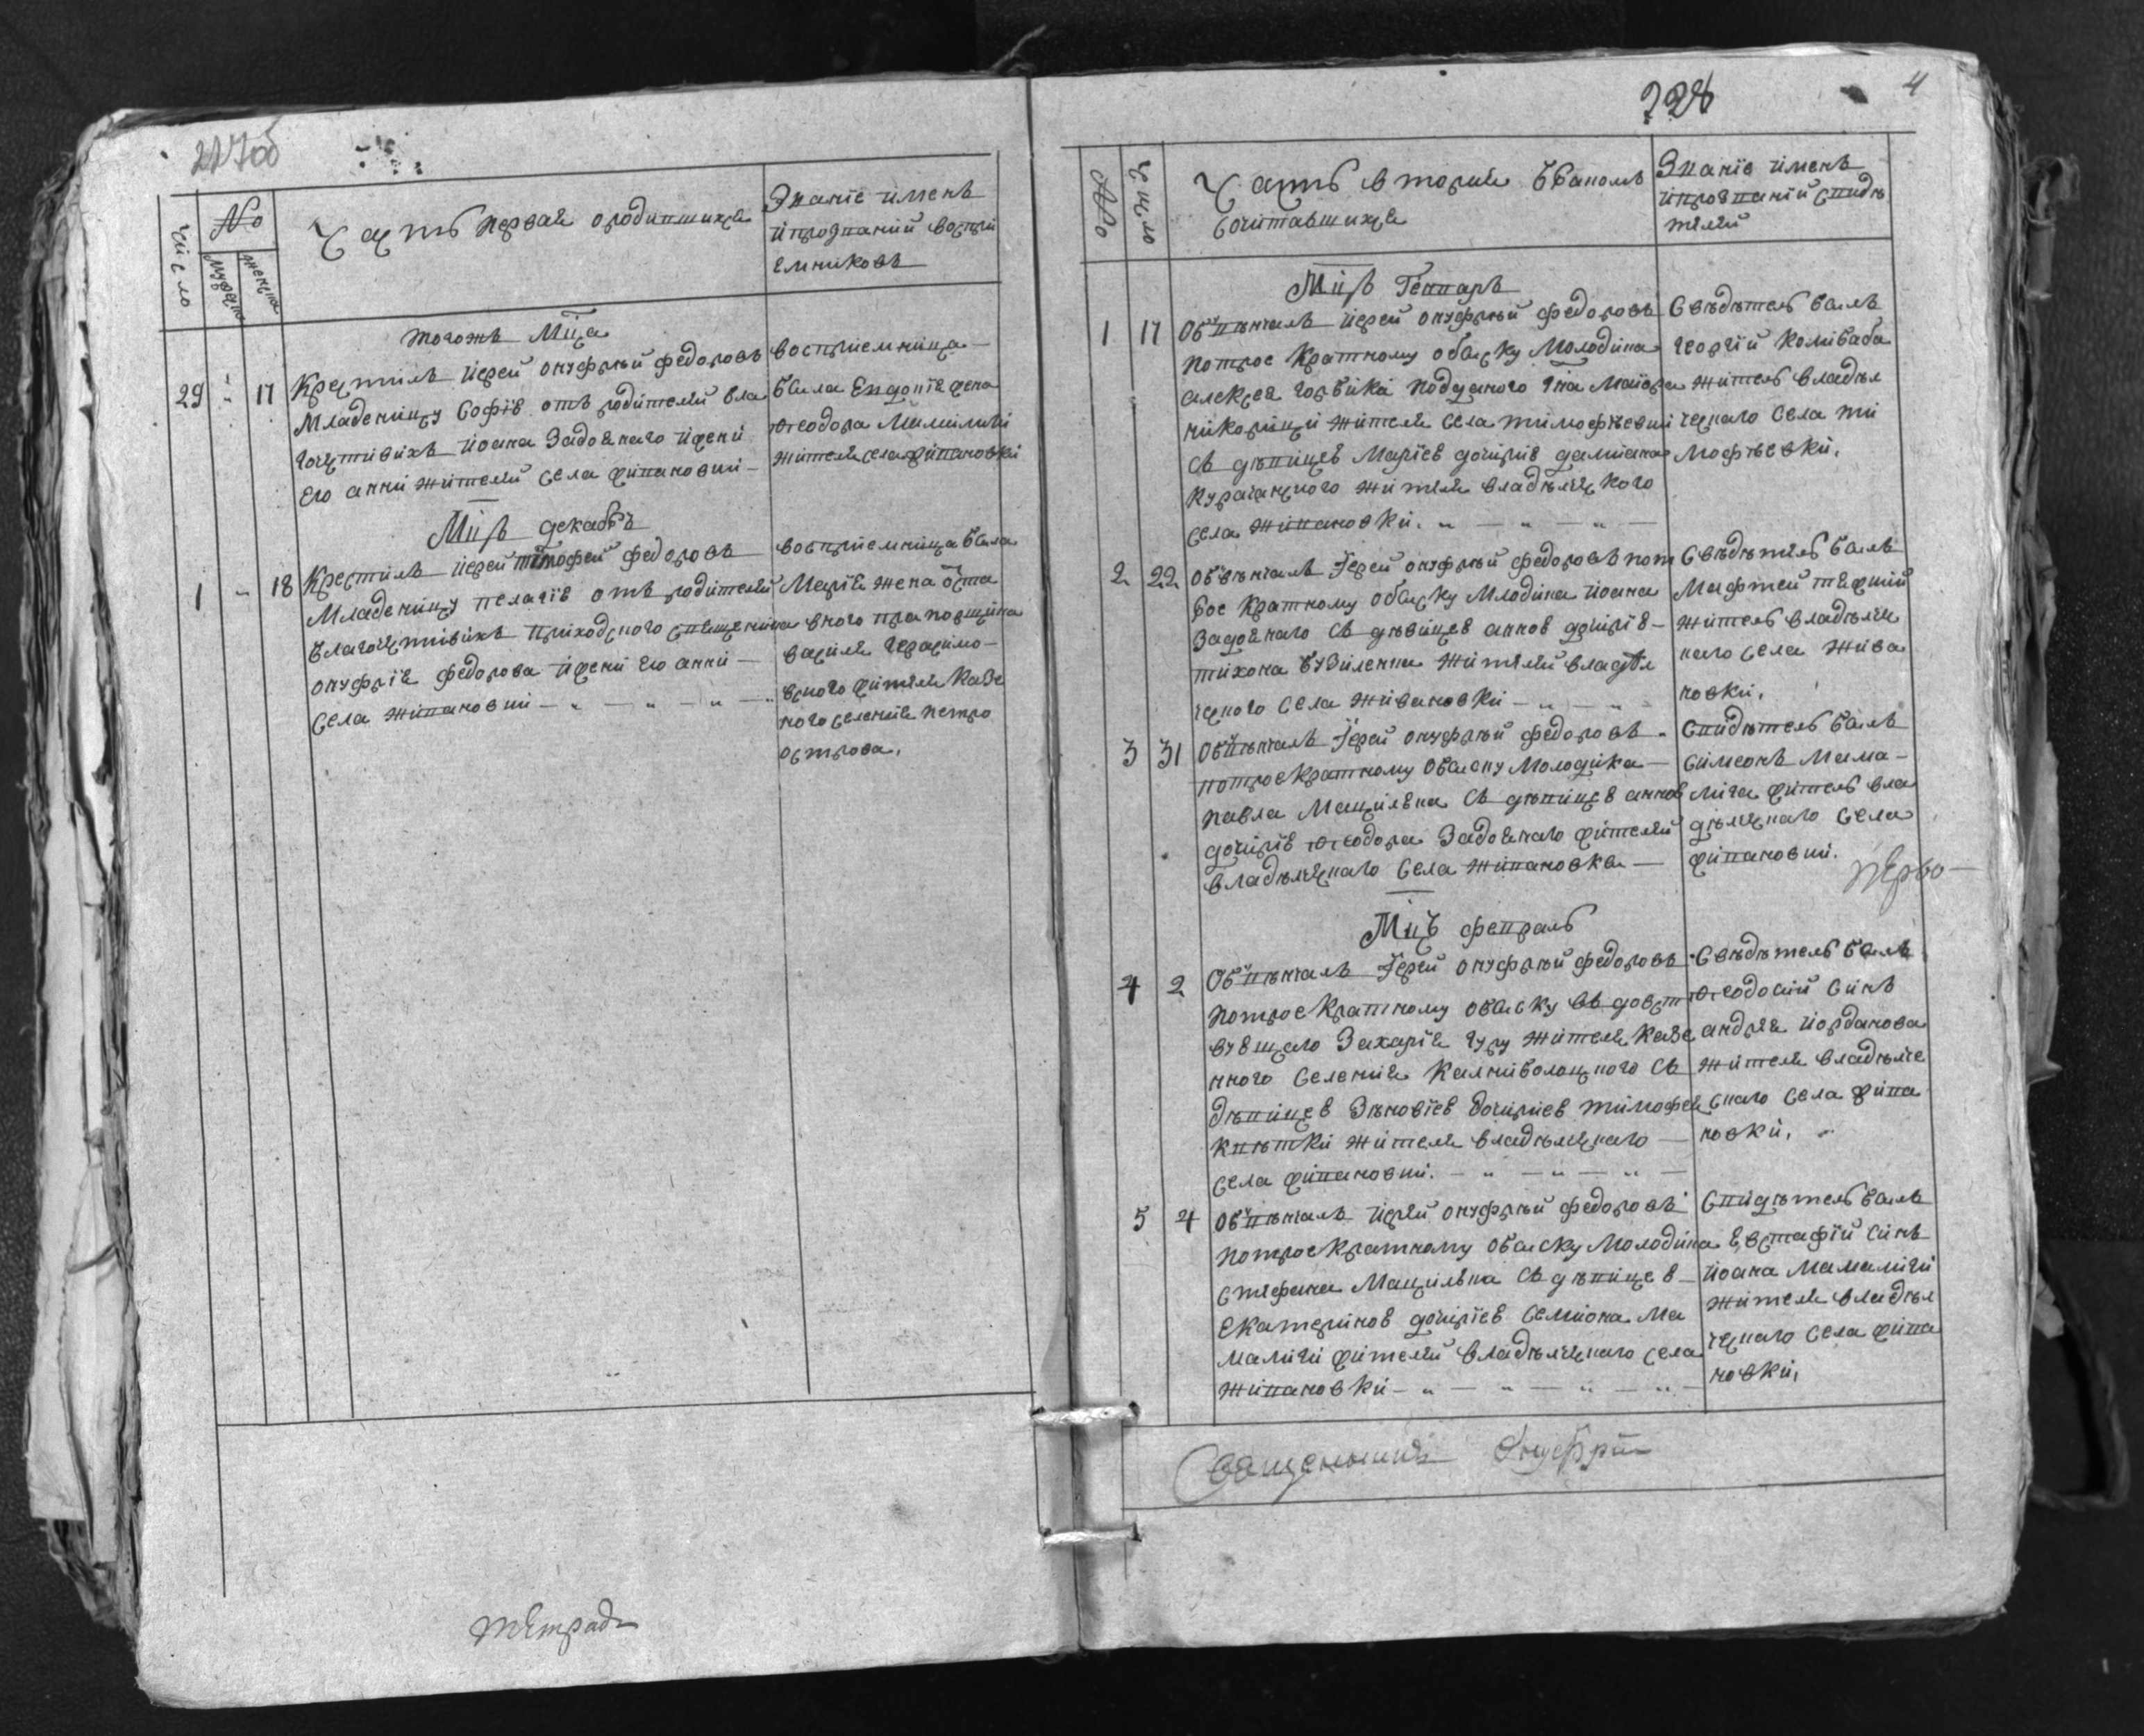 228
4
Число
No
мужеска
женска
Часть первая о родившихся
Званіе именъ
и прозваній воспрі
емниковъ
тогожъ Мца
29
17
Крестилъ иерей онуфрый федоровъ
младеницу Софію отъ родителей бла
гочестивихъ иоана Задоенаго и жени
его анни жителей села живановки
восприемница
била Евдокія жена
Ѳеодора Мамалиги
жителя села живановки
Мцъ декабръ
1
18
Крестилъ иерей тимофей федоровъ
младеницу пелагію отъ родителей
благочестивихъ приходского священика
онуфрія федорова и жени его анни
села живановки
восприемница била
Марія жена
вного прапорщика
василя герасимо
вского жителя казе
ного селенія петро
острова.
тетрадь
No
Число
Часть вторая бракомъ
сочитавшихся
Званіе именъ
и прозваній свидѣ
телей
Мцъ Генваръ
1
17
Обвѣнчалъ иерей онуфрый федоровъ
потрое кратному обыску молодика
алексея подданого гна маиора
жителя села тимофѣевки
съ дѣвицею Маріею дочирю дамиана
жителя владѣлческого
села живановки.
Свѣдѣтель билъ
георгій колибаба
житель владѣл
ческаго села ти
мофѣевки.
2
22
Обвѣнчалъ Іерей онуфрый федоровъ пот
рое кратному обыску млодика иоана
Задоенаго съ дѣвицею анною дочирю
тихона жителей владѣл
ческого села живановки
Свѣдѣтель билъ
житель владѣлче
скаго села жива
новки.
3
31
Обвѣнчалъ Іерей онуфрый федоровъ
потрое кратному обыску молодика
павла Мациевка съ дѣвицею анною
дочирю Ѳеодора Задоенаго жителей
владѣлческаго села живановка
Свидѣтель билъ
Симеонъ Мама
лига житель вла
дѣлческаго села
живановки.
перво
Мцъ февраль
4
2
Обвѣнчалъ Іерей онуфрый федоровъ
потрое кратному обыску
вувшаго Захарія гуру жителя казе
нного селенія калниболоцкого съ
дѣвицею Зѣновіею дочиріею тимофея
квѣтки жителя владѣлческаго
села живановки.
Свѣдѣтель билъ
Ѳеодосій синъ
андрея иорданова
жителя владѣлче
скаго села жива
новки.
5
4
Обвѣнчалъ иерей онуфрый федоровъ
потрое кратному обыску молодика
стефана Мациевка съ дѣвицею
екатериною дочиріею семиона ма
малиги жителей владѣлческаго села
живановки
Свидѣтель билъ
Евстафій синъ
иоана мамалиги
жителя владѣл
ческаго села жива
новки.
Священникъ Онуфрій